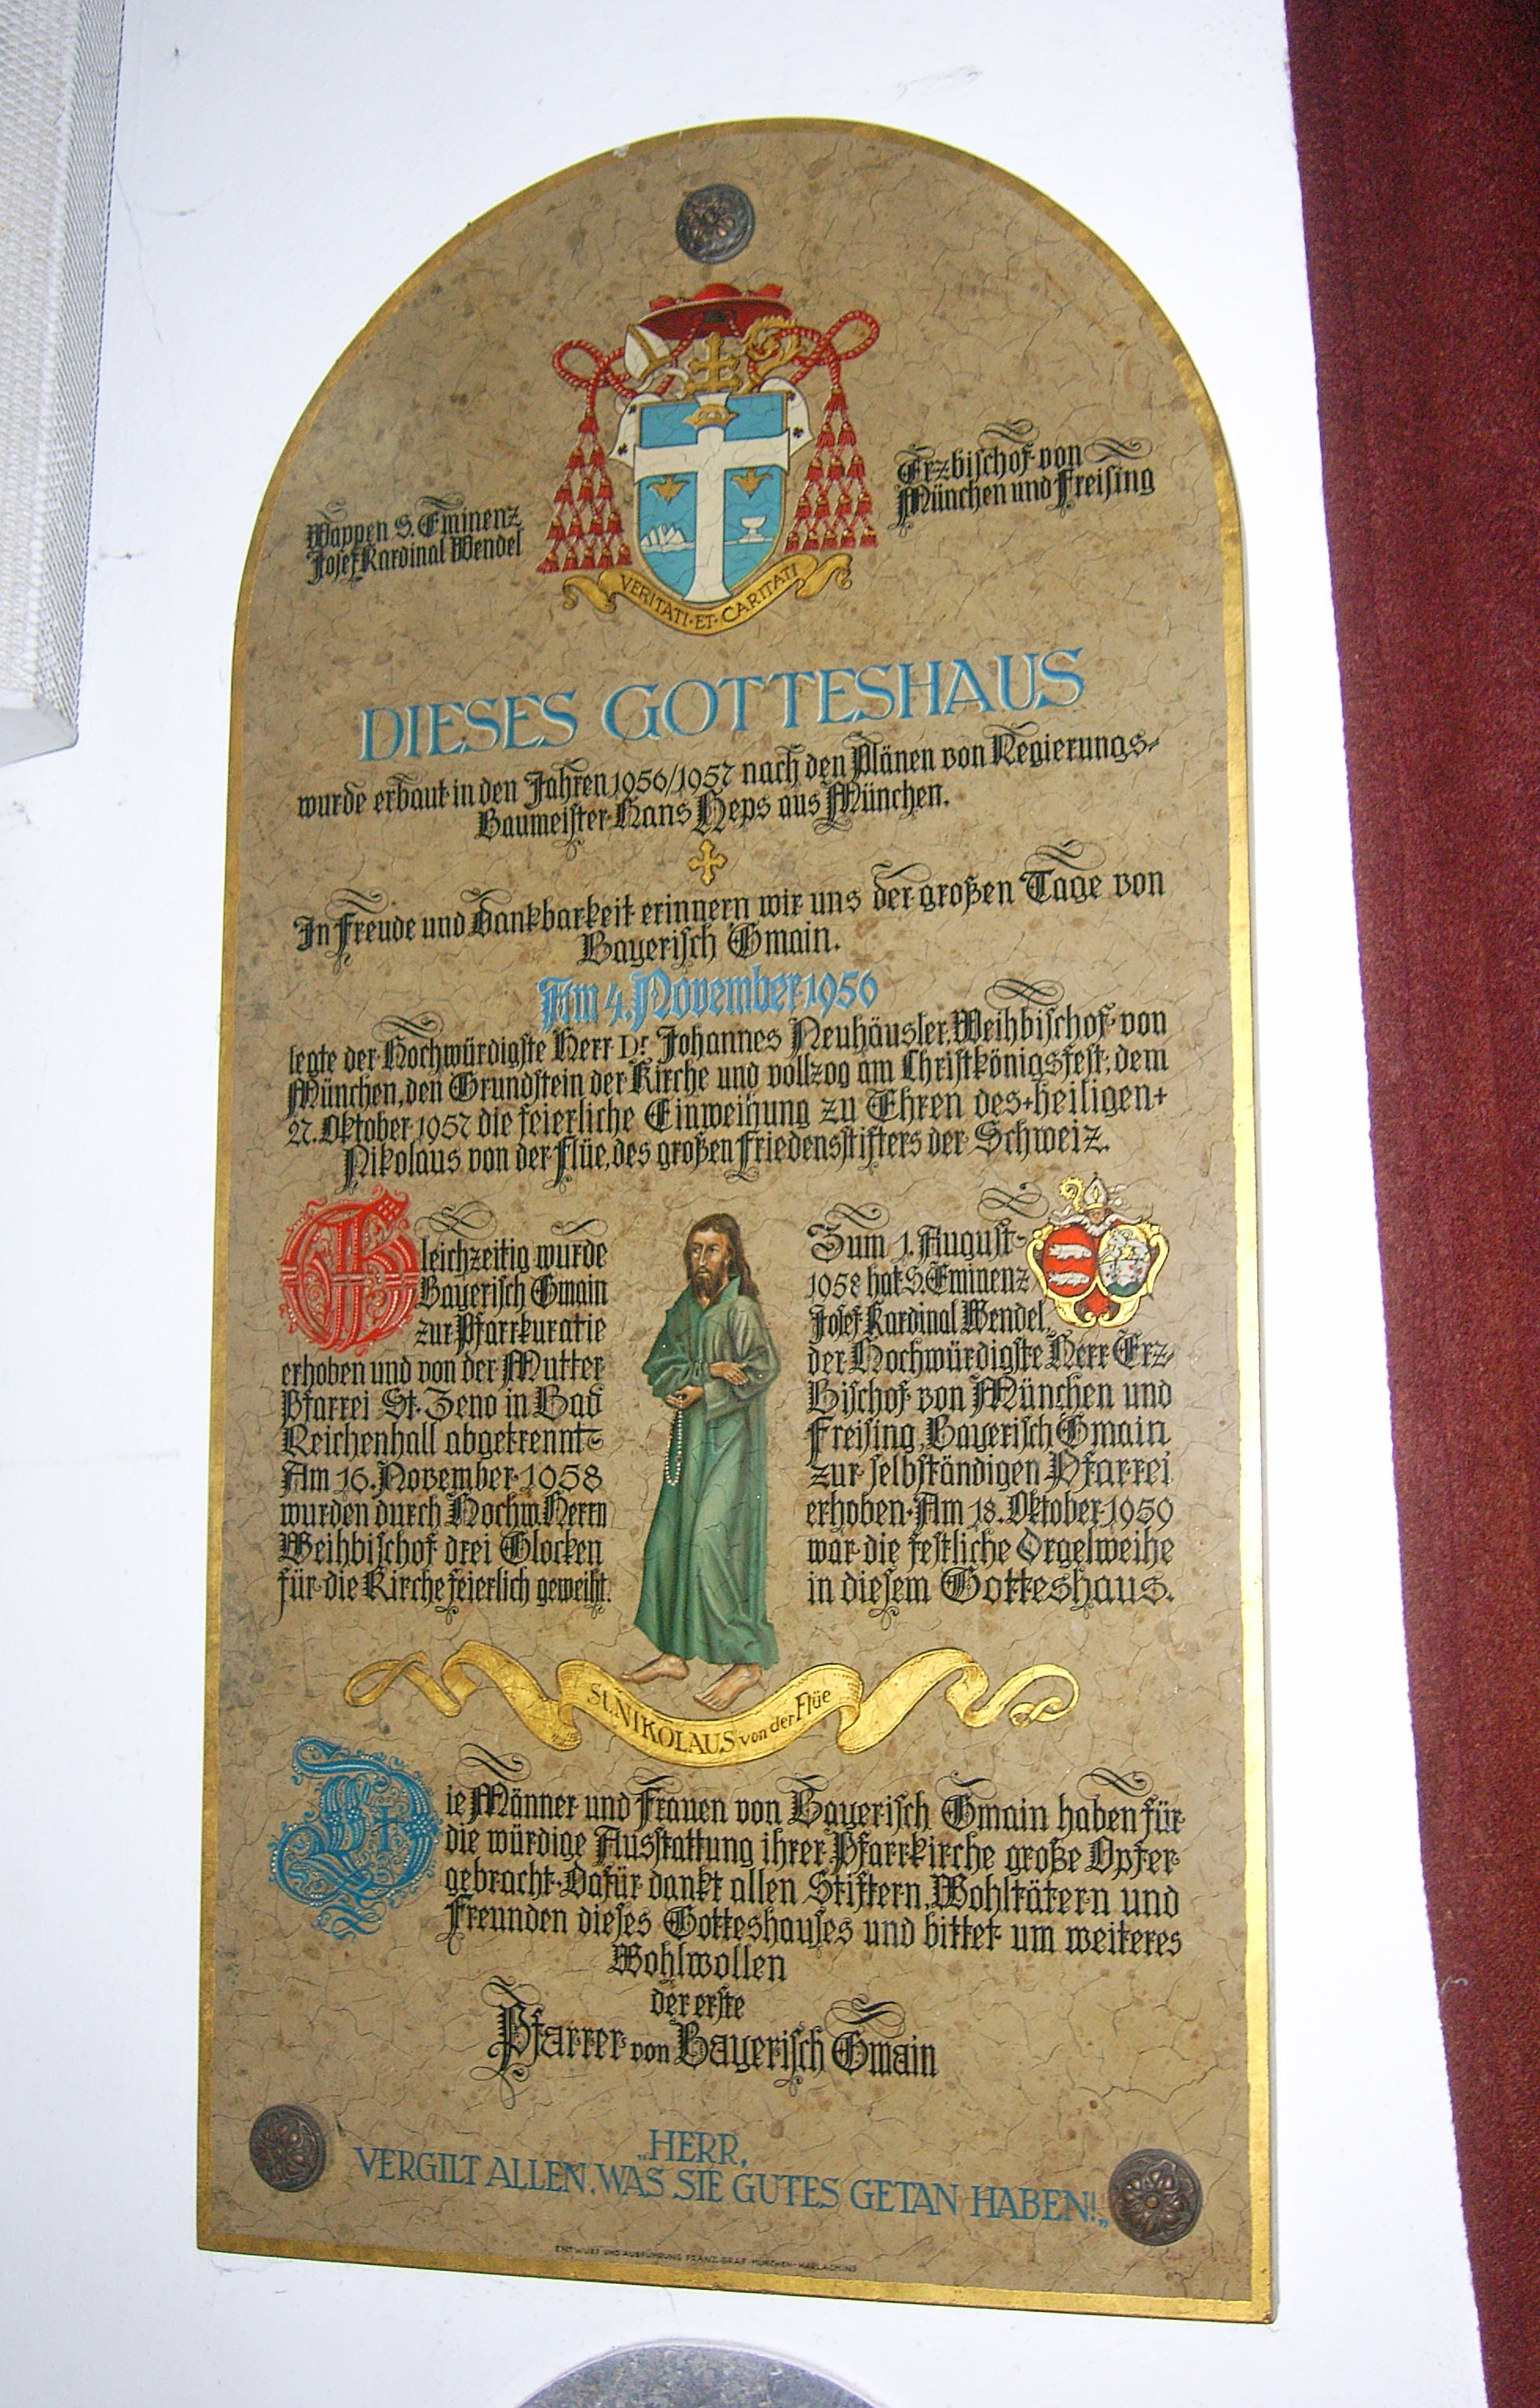 Wappen S. Eminenz
Josef Kardinal Wendel
Erzbischof von
München und Freising
VERITATI·ET·CARITATI
DIESES GOTTESHAUS
wurde erbaut in den Jahren 1956/1957 nach den Plänen von Regierungs-
Baumeister Hans Heps aus München.
In Freude und Dankbarkeit erinnern wir uns der großen Tage von
Bayerisch Gmain.
Am 4. November 1956
legte der Hochwürdigste Herr Dr. Johannes Neuhäusler, Weihbischof von
München, den Grundstein der Kirche und vollzog am Christkönigsfest, dem
27. Oktober 1957 die feierliche Einweihung zu Ehren des+heiligen+
Nikolaus von der Flüe, des großen Friedensstifters der Schweiz.
Gleichzeitig wurde
Bayerisch Gmain
zur Pfarrkuratie
erhoben und von der Mutter
Pfarrei St. Zeno in Bad
Reichenhall abgetrennt
Am 16. November 1958
wurden durch Hochw. Herrn
Weihbischof drei Glocken
für die Kirche feierlich geweiht.
Zum 1. August
1958 hat S. Eminenz
Josef Kardinal Wendel,
der Hochwürdigste Herr Erz-
Bischof von München und
Freising, Bayerisch Gmain
zur selbständigen Pfarrei
erhoben. Am 18. Oktober 1959
war die festliche Orgelweihe
in diesem Gotteshaus.
St. NIKOLAUS von der Flüe
Die Männer und Frauen von Bayerisch Gmain haben für
die würdige Ausstattung ihrer Pfarrkirche große Opfer
gebracht. Dafür dankt allen Stiftern, Wohltätern und
Freunden dieses Gotteshauses und bittet um weiteres
Wohlwollen
der erste
Pfarrer von Bayerisch Gmain
„HERR,
VERGILT ALLEN, WAS SIE GUTES GETAN HABEN!„
ENTWURF UND AUSFÜHRUNG FRANZ GRAF MÜNCHEN-HARLACHING